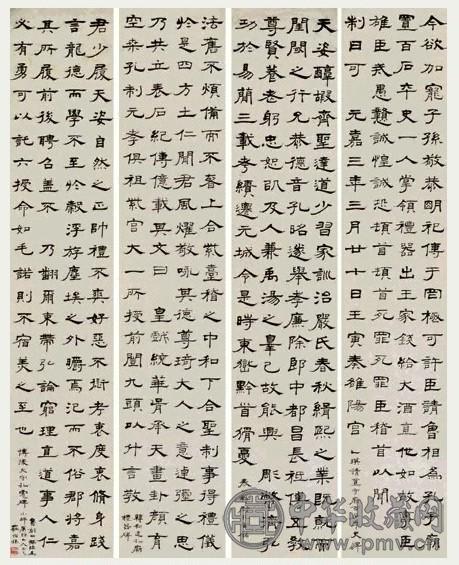 今欲加寵子孫敬恭明祀傳于罔極可許臣請魯相為孔子廟
置百石卒史一人掌領禮器出王家錢給犬酒直他如故事臣
雄臣戒愚戇誠惶誠恐頓首頓首死罪死罪臣稽首以聞
制曰可 元嘉三年三月廿七日壬寅奏雒陽宮
天姿醇嘏齊聖達道少習家訓治嚴氏春秋緝熙之業既就而
閨閾之行允恭德音孔昭遂舉孝廉除郎中都昌長祗傅五教
尊賢養老躬忠恕以及人兼禹湯之辠己故能興
功於易簡三載考績遷元城令是時東嶽黔首猾夏
法舊不煩備而不奢上合紫臺稽之中和下合聖制事得禮儀
於是四方士仁聞君風燿敬咏其德尊琦大人之意逴彌之思
乃共立表石紀傳億載其文曰 皇戲統華胥承天畫卦顏育
空桑孔制元孝俱祖紫宮大一所授前闓九頭以什言教
韓敕造孔廟
禮器碑
君少履天姿自然之正帥禮不爽好惡不愆考衷度衷脩身踐
言龍德而學不至於穀浮游塵埃之外皭焉氾而不俗郡將嘉
其所履前後聘召蓋不 乃翻爾束帶弘論窮理直道事人仁
必有勇可以託六授命如毛諾則不宿美之至也
博陵太守孔彪碑
中华收藏网
pmv.com